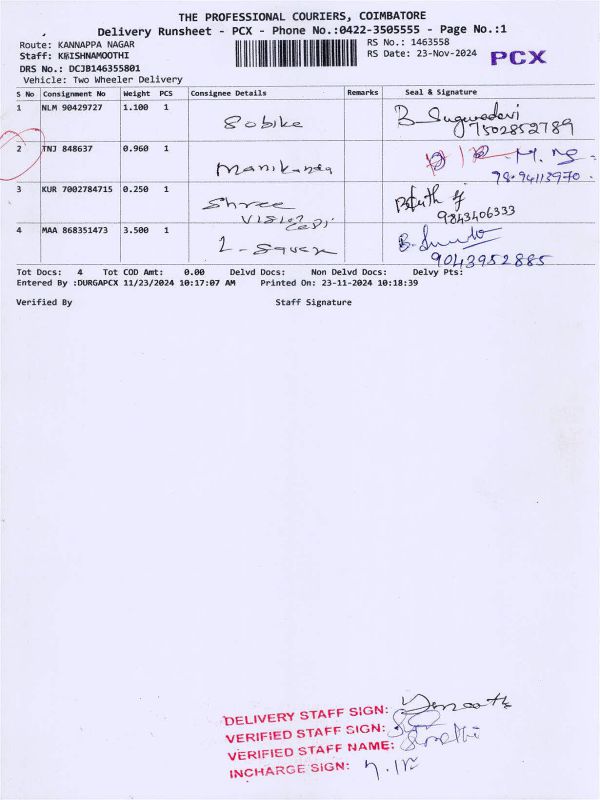 THE PROFESSIONAL COURIERS, COIMBATORE
Delivery Runsheet - PCX - Phone No.:0422-3505555 - Page No.:1
Route: KANNAPPA NAGAR
RS No.: 1463558
Staff: KRISHNAMOOTHI
RS Date: 23-Nov-2024
PCX
DRS No.: DCJB146355801
Vehicle: Two Wheeler Delivery
S No Consignment No Weight PCS Consignee Details Remarks Seal & Signature
1 NLM 90429727 1.100 1 Sobike B. Sugunadevi
7502852789
2 TNJ 848637 0.960 1 Manikanda
98.94113970.
3 KUR 7002784715 0.250 1 Shree
Vision
9843406333
4 MAA 868351473 3.500 1 L-Square
9043952885
Tot Docs: 4 Tot COD Amt: 0.00 Delvd Docs: Non Delvd Docs: Delvy Pts:
Entered By :DURGAPCX 11/23/2024 10:17:07 AM Printed On: 23-11-2024 10:18:39
Verified By Staff Signature
DELIVERY STAFF SIGN:
VERIFIED STAFF SIGN:
VERIFIED STAFF NAME:
INCHARGE SIGN: